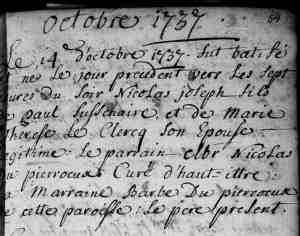 octobre 1737
Le 14 d'octobre 1737. fut batisé
né le jour precedent vers les sept
ures du soir Nicolas joseph fils
e paul Lussenaire et de Marie
Therese le Clercq son Epouse
egitime. le parrain Nicolas
u pierroceux Curé d'haut-ittre:
a Marraine Barbe Du pierroceux
e cette paroisse: le pere present.